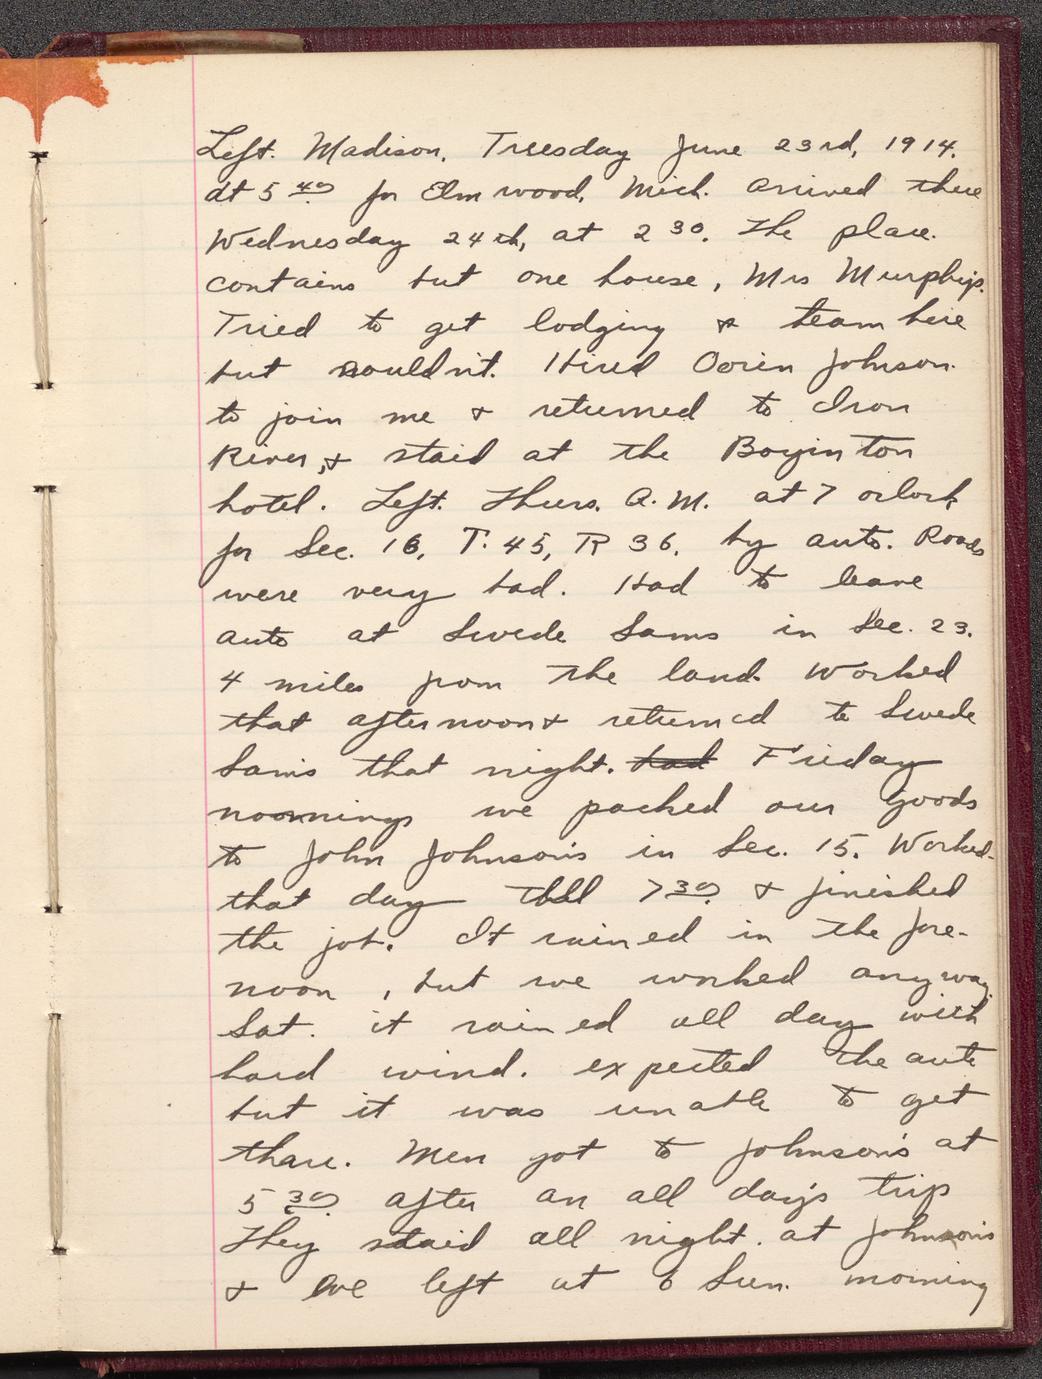 Left. Madison, Tuesday June 23rd, 1914.
at 5 40 for Elmwood, Mich. arrived there
Wednesday 24th, at 2 30. The place.
contains but one house, Mrs Murphys.
Tried to get lodging & team here
but couldn't. Hired Oorin Johnson.
to join me & returned to Iron
River, & staid at the Boyinton
hotel. Left. Thurs. A.M. at 7 oclock
for Sec. 16, T. 45, R 36, by auto. Roads
were very bad. Had to leave
auto at Swede Sams in Sec. 23.
4 miles from the land. Worked
that afternoon & returned to Swede
Sam's that night. Friday
moornings we packed our goods
to John Johnson's in Sec. 15. Worked.
that day till 7 30 & finished
the job. It rained in the fore-
noon, but we worked anyway
Sat. it rained all day with
hard wind. expected the auto
but it was unable to get
thare. Men got to Johnson's at
5 30 after an all day's trip
They staid all night. at Johnson's
& we left at 6 Sun. morning